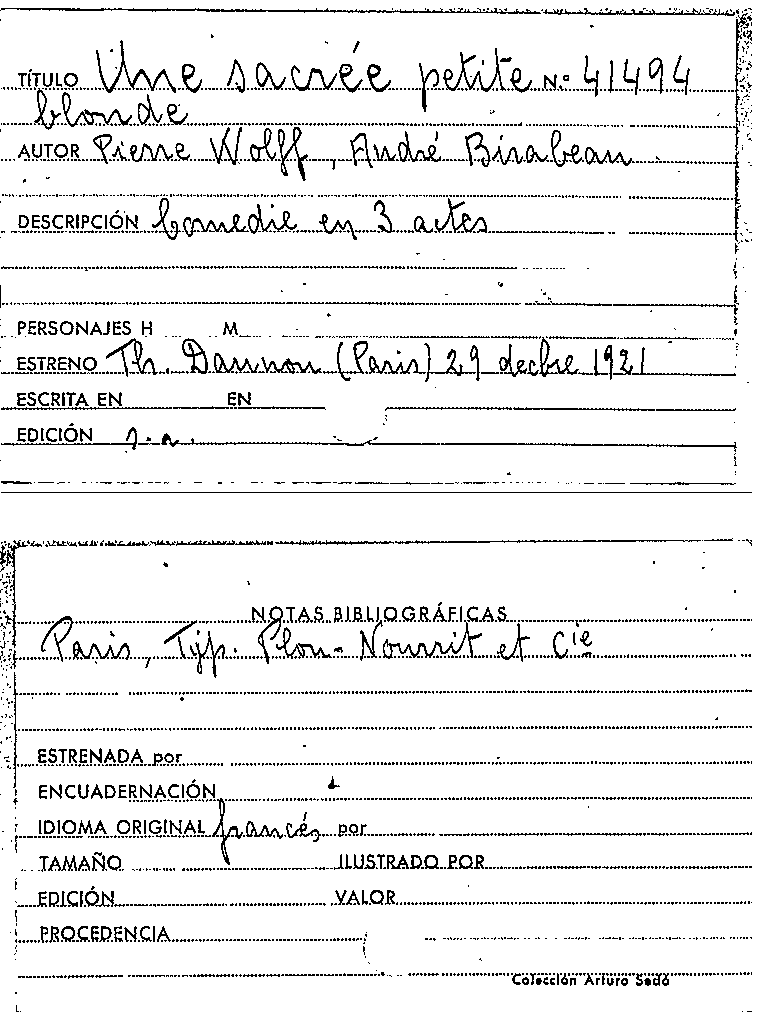 TÍTULO Une sacrée petite N.º 41494
blonde
AUTOR Pierre Wolff, André Birabeau
DESCRIPCIÓN Comedie en 3 actes
PERSONAJES H M
ESTRENO Th. Daunou (Paris) 29 decbre 1921
ESCRITA EN EN
EDICIÓN s.a.
NOTAS BIBLIOGRÁFICAS
Paris, Typ. Plon-Nourrit et Cie
ESTRENADA por
ENCUADERNACIÓN
IDIOMA ORIGINAL francés por
TAMAÑO ILUSTRADO POR
EDICIÓN VALOR
PROCEDENCIA
Colección Arturo Sedó